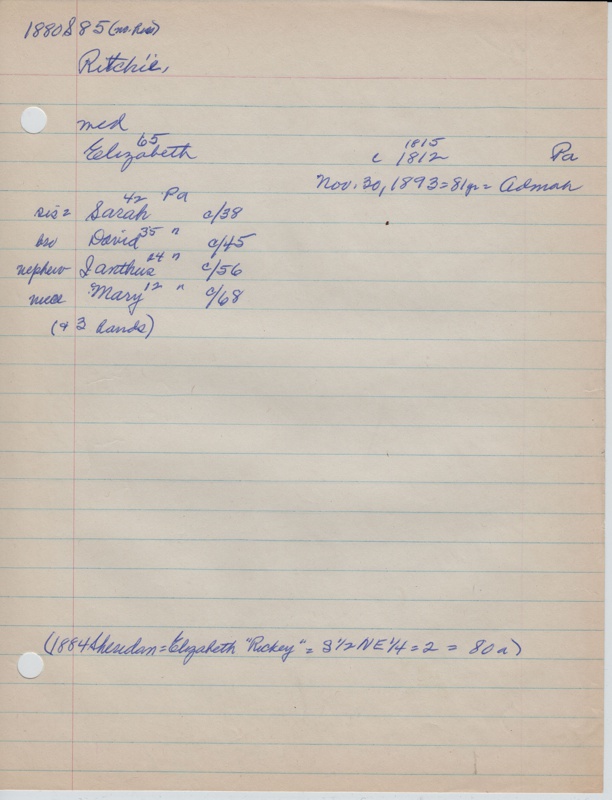 1880 S 85 (no. Riss)
Ritchie,
med
65 1815
Elizabeth c 1812 Pa
Nov. 30, 1893 = 81yr = Admah
42 Pa
sis = Sarah c/38
bro David 35 " c/45
nephew Ianthus 24 " c/56
niece Mary 12 " c/68
(+ 3 hands)
(1884 Sheridan = Elizabeth "Rickey" = S 1/2 NE 1/4 = 2 = 80 a)